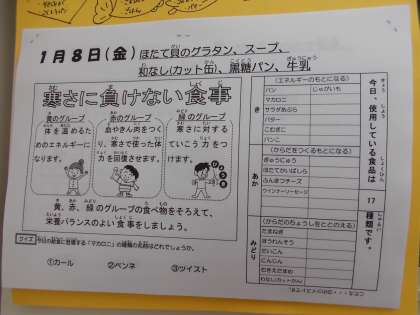 1月8日(金) ほたて貝のグラタン、スープ、
和なし(カット缶)、黒糖パン、牛乳
寒さに負けない食事
黄のグループ
体を温めるた
めのエネルギーに
なります。
赤のグループ
血やきん肉をつく
り、寒さで使った体
力を回復させます。
緑のグループ
寒さに対する
ていこう力をつ
けます。
黄、赤、緑のグループの食べ物をそろえて、
栄養バランスのよい食事をしましょう。
クイズ 今日の給食に登場する「マカロニ」の種類の名前はどれでしょうか。
①カール ②ペンネ ③ツイスト
今日、使用している食品は 17 種類です。
き
(エネルギーのもとになる)
パン じゃがいも
マカロニ
サラダあぶら
バター
こむぎこ
パンこ
あか
(からだをつくるもとになる)
ぎゅうにゅう
ほたてかいばしら
ふんまつチーズ
ウインナーソーセージ
みどり
(からだのちょうしをととのえる)
たまねぎ
ほうれんそう
だいこん
にんじん
むきえだまめ
わなし(カットかん)